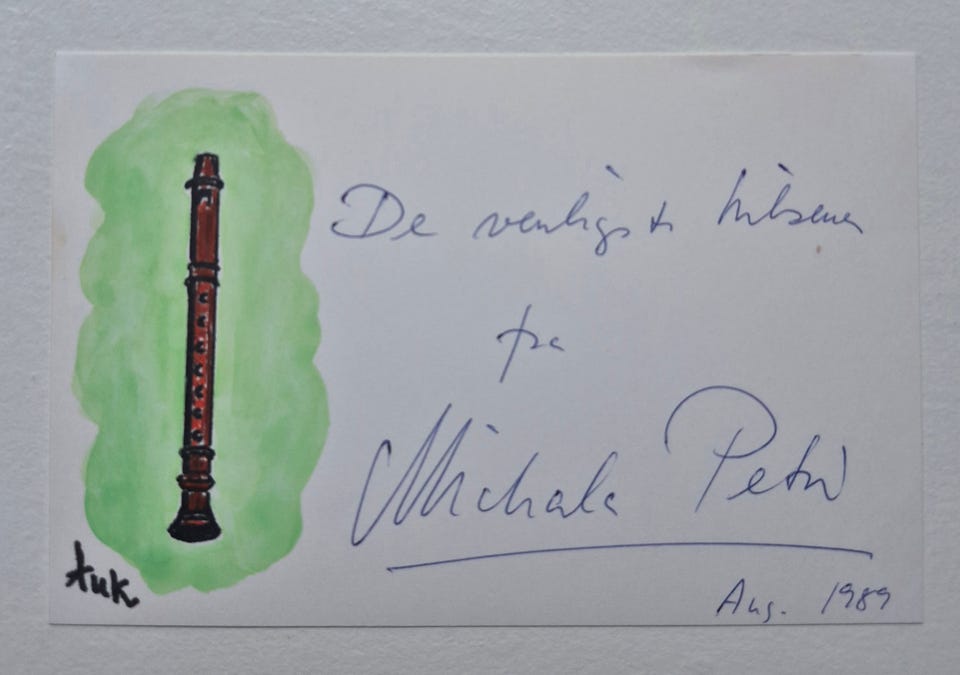 De venligste hilsener
fra
Michala Petri
Aug. 1989
Auk